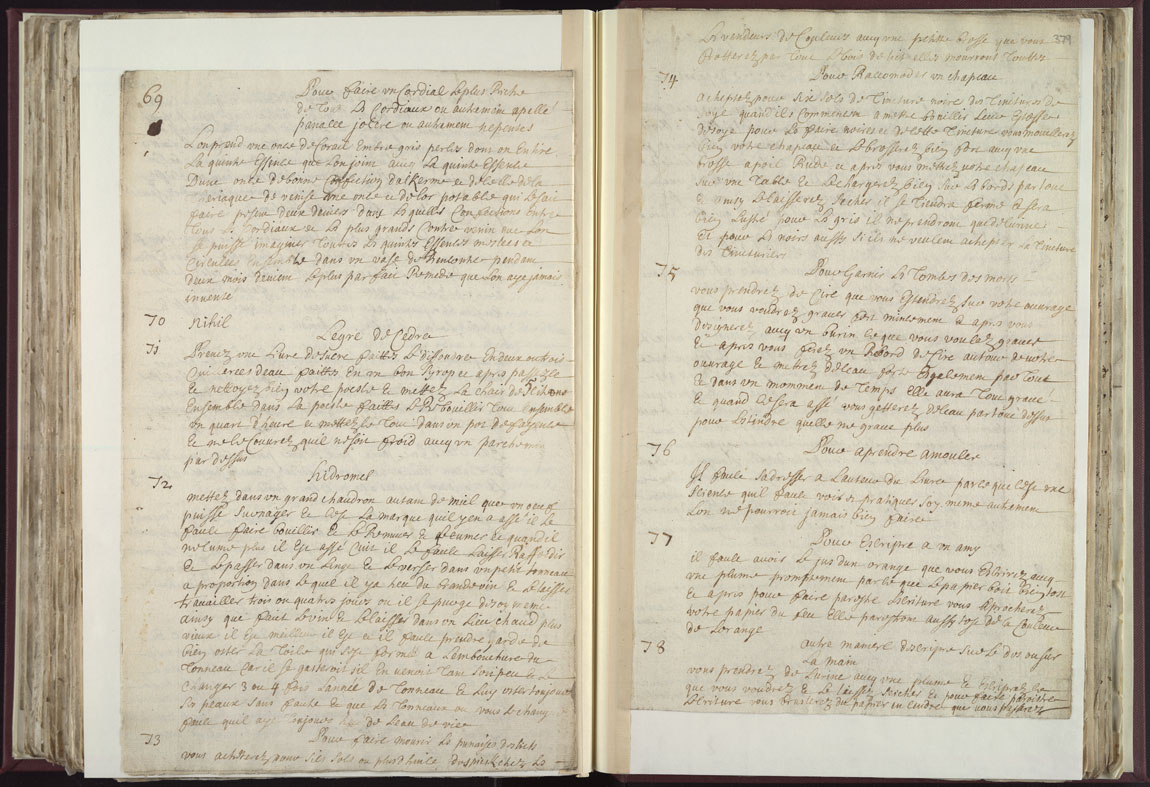 69
Pour faire un Cordial Le plus Riche
de Tous Les Cordiaux ou autremain apellé
panacee ou autrement nepentes
Lon prend une once de Corail Embre gris perles dont on En tire
La quinte Essence que Lon joint aucq La quinte Essence
Dune once de bonne Confection dalkerme et de Celle de la
Theriaque de venise une once et dor potable qui Se fait
faire
Tous Les Cordiaux et Les plus grands Contre venin que Lon
se puisse imaginer Toutes Les quintes Essences meslees et
Circulees Ensemble dans un vase de Rencontre pendan
deux mois devient Le plus parfait Remede que Lon aye jamais
invente
70 Nihil
71
Prenez une Livre de sucre faittes Le dissoudre En deux ou trois
Cuilerees deau faittes En un bon Syrop et apres passez le
et nettoyez bien votre poesle et mettez La chair de Citrons
Ensemble dans La poesle faittes Le Rebouillir Tout Ensemble
un quart dheure et mettez Le Tout dans un pot de fayence
et ne Le Couvrez quil ne soit froid aucq un parchemin
par dessus
72 hidromel
mettez dans un grand chaudron autant de miel que un oeuf
puisse Surnager et Cest La marque quil y en a assé il Le
faut faire bouillir et Le Remuer et Ecumer et quand il
nécume plus il Est assé Cuit il Le faut Laisser Raffroidir
et Le passer dans un Linge et Le verser dans un petit Tonneau
a proportion dans Lequel il y a heu du brandevin et Le Laisser
travailler trois ou quatre jours ou il Se purge de soy meme
ainsy que fait Le vin et Le Laisser dans un Lieu chaud plus
vieux il Est meilleur il Est et il faut prendre garde de
bien oster La Toile qui Sest formé a Lembouchure du
Tonneau Car il Se gasteroit sil En venoit Tant Soit peu et Le
Changer 3 ou 4 fois Lannée de Tonneau et Luy oster Toujours
Ses peaux Sans faute de que Le Tonneau ou vous Le changez
faut quil aye Toujours heu de Leau de vie
73 Pour faire mourir Les punaises des Licts
vous achterez pour Six Sols ou plus dhuile chez Les
379
Les vendeurs de Couleurs aucq une petitte brosse que vous
frotterez par Tout Le bois de Lit Elles mourront Touttes
74 Pour Raccomoder un chapeau
acheptez pour Six Sols de Tinture noire des Tintures de
Soye quand ils Commencent a mettre bouillir Leur Estoffe
de soye pour La faire noires et de Cette Tincture vous mouillerez
bien votre chapeau et Le brosserez bien fort aucq une
brosse a poil Rude et apres vous mettez votre chapeau
Sur un Table et Le chargerez bien Sur Les bords par tout
et ainsy Le Laisserez Secher il Se Tiendra ferme et Sera
bien Lustré pour Les gris il ne prendront que de Lonne
Et pour Les noirs aussy Si ils ne veulent achepter La Tincture
des Tincturiers
75 Pour Graver Les Tombes des morts
vous prendrez de Cire que vous Estendrez Sur votre ouvrage
que vous voudrez graver fort mincement et apres vous
Desineres aucq un burin Ce que vous voulez graver
Et apres vous ferez un Rebord de Cire autour de votre
ouvrage et mettez de Leau forte Esgalement par Tout
et dans un moment de Temps Elle aura Tout gravé
Et quand Ce Sera assé vous getterez de Leau par tout dessus
pour Esteindre quelle ne grave plus
76 Pour aprendre a mouler
Il faut Sadresser a Lauteur du Livre parce que Cest une
Science quil faut voir et pratiquer Soy meme autrement
Lon ne pourroit jamais bien faire
77 Pour Escriptre a un amy
il faut avoir Le jus dun orange que vous Escrirez aucq
une plume promptement parce que Le papier boit bientost
Et apres pour faire paroistre Lecriture vous aprocherez
votre papier du feu Elle paroistra aussy tost de La Couleur
de Lorange
78 autre maniere descripre Sur Le dos ou Sur
La main
vous prendrez de Lurine aucq une plume et Escriprez Ce
que vous voudrez et Le Laissez Secher et pour faire paroistre
Lecriture vous bruslerez du papier en Cendre que vous